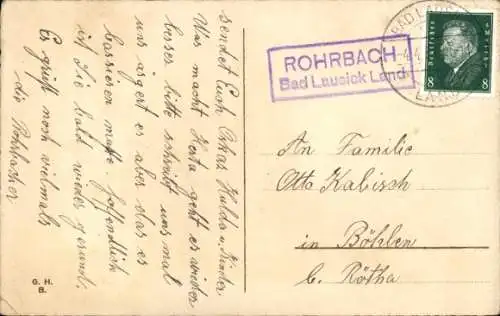 sendet Euch Oskar Hulda u. Kinder.
Was macht Herta geht es wieder
besser bitte schreibt uns mal
uns ärgert es aber das es
passieren mußte. hoffentlich
ist Sie bald wieder gesund.
Es grüßt noch vielmals
die Rohrbacher
G. H.
B.
ROHRBACH
Bad Lausick Land
BAD LAUSICK
Deutsches Reich
8 8
An Familie
Otto Kabisch
in Böhlen
b. Rötha